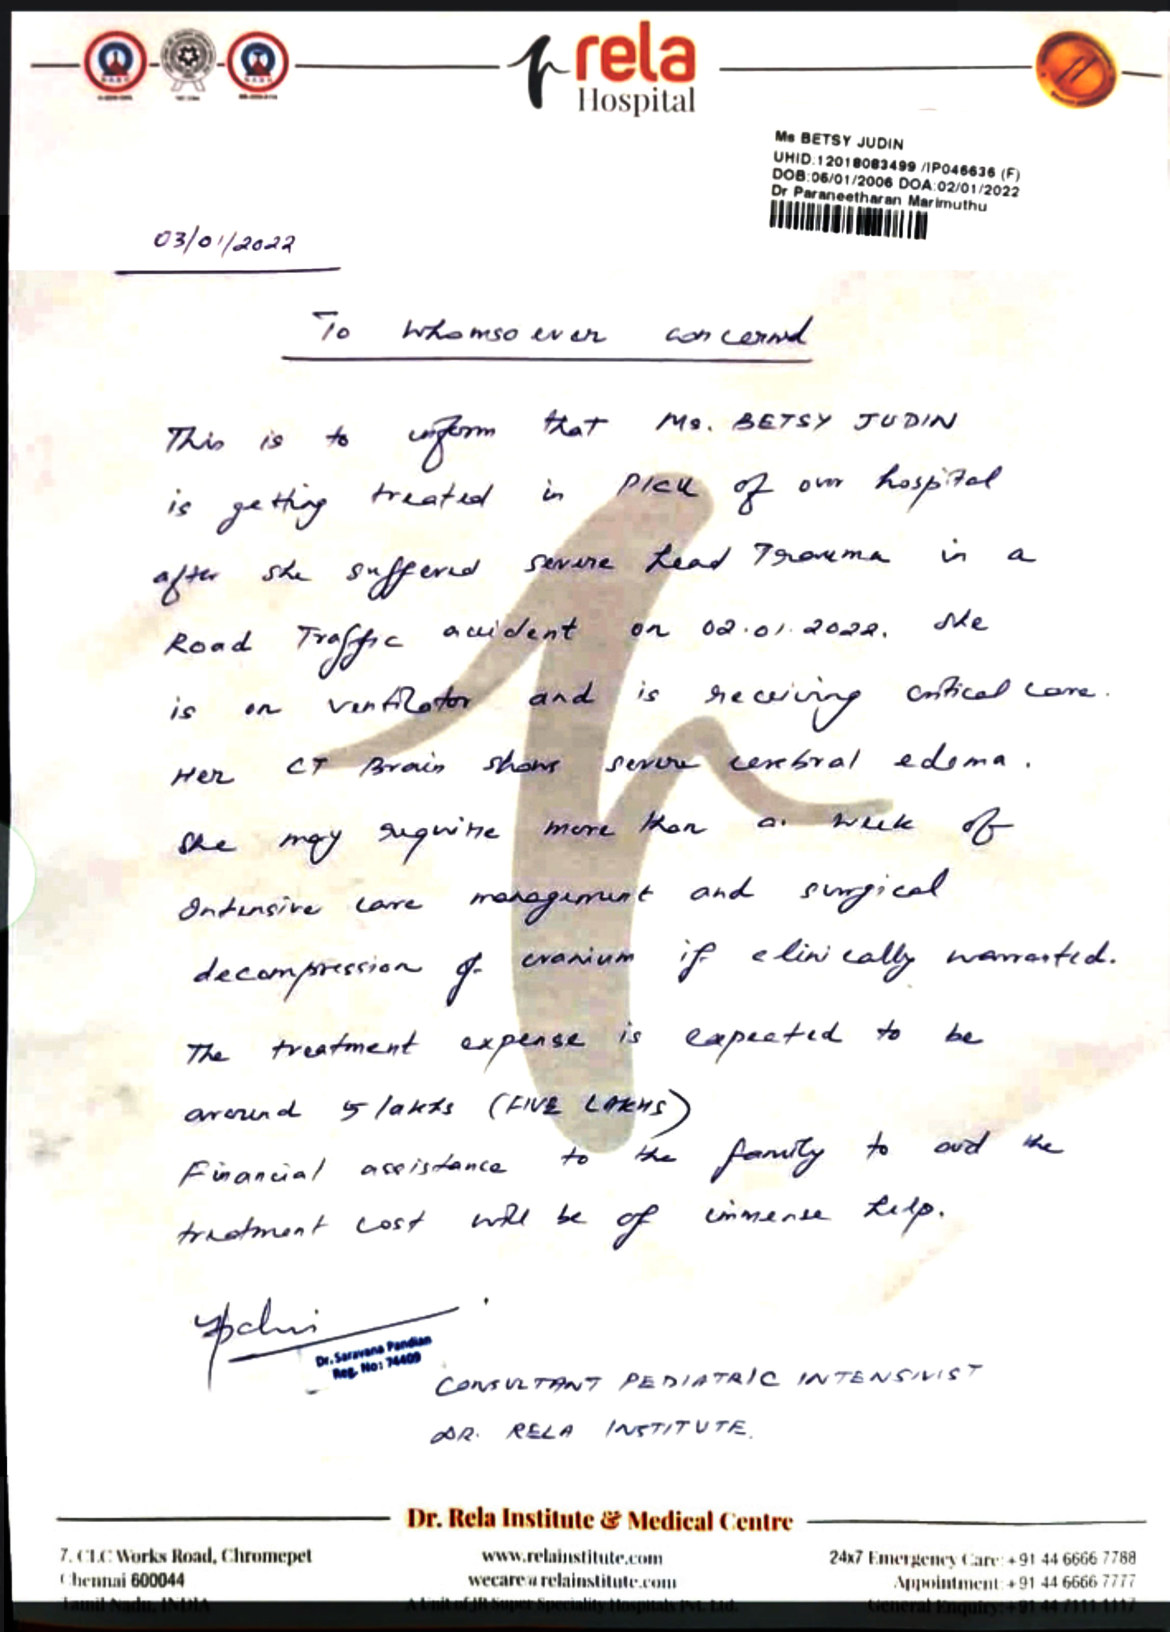 rela
Hospital
Ms BETSY JUDIN
UHID:12018083499 /IP046636 (F)
DOB:06/01/2006 DOA:02/01/2022
Dr Paraneetharan Marimuthu
03/01/2022
To whomsoever concernd
This is to inform that Ms. BETSY JUDIN
is getting treated in PICU of our hospital
after she suffered severe head Trauma in a
Road Traffic accident on 02.01.2022. she
is on ventilator and is receiving critical care.
Her CT Brain shows severe cerebral edema.
She may require more than a week of
Intensive care management and surgical
decompression of cranium if clinically warranted.
The treatment expense is expected to be
around 5 lakhs (FIVE LAKHS)
Financial assistance to the family to aid the
treatment cost will be of immense help.
Dr. Saravana Pandian
Reg. No: 74409
CONSULTANT PEDIATRIC INTENSIVIST
DR. RELA INSTITUTE.
Dr. Rela Institute & Medical Centre
7, CLC Works Road, Chromepet
Chennai 600044
Tamil Nadu, INDIA
www.relainstitute.com
wecare@relainstitute.com
A Unit of JR Super Speciality Hospitals Pvt. Ltd.
24x7 Emergency Care: +91 44 6666 7788
Appointment: +91 44 6666 7777
General Enquiry: +91 44 7111 1117